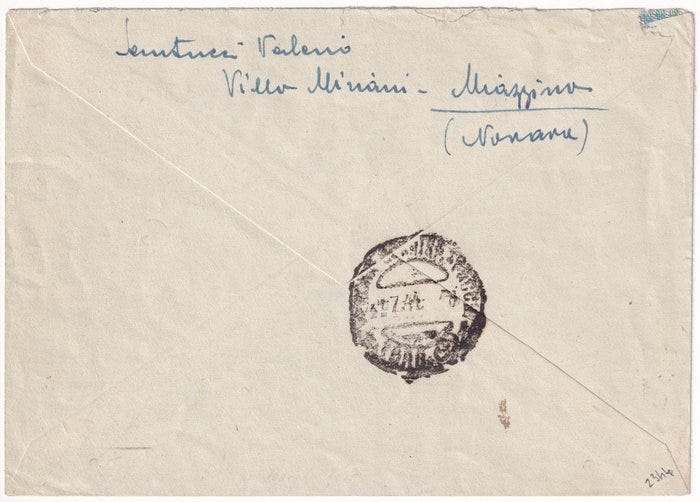 Santucci Valerio
Villa Miriani - Miazzina
(Novara)
7.44
2344